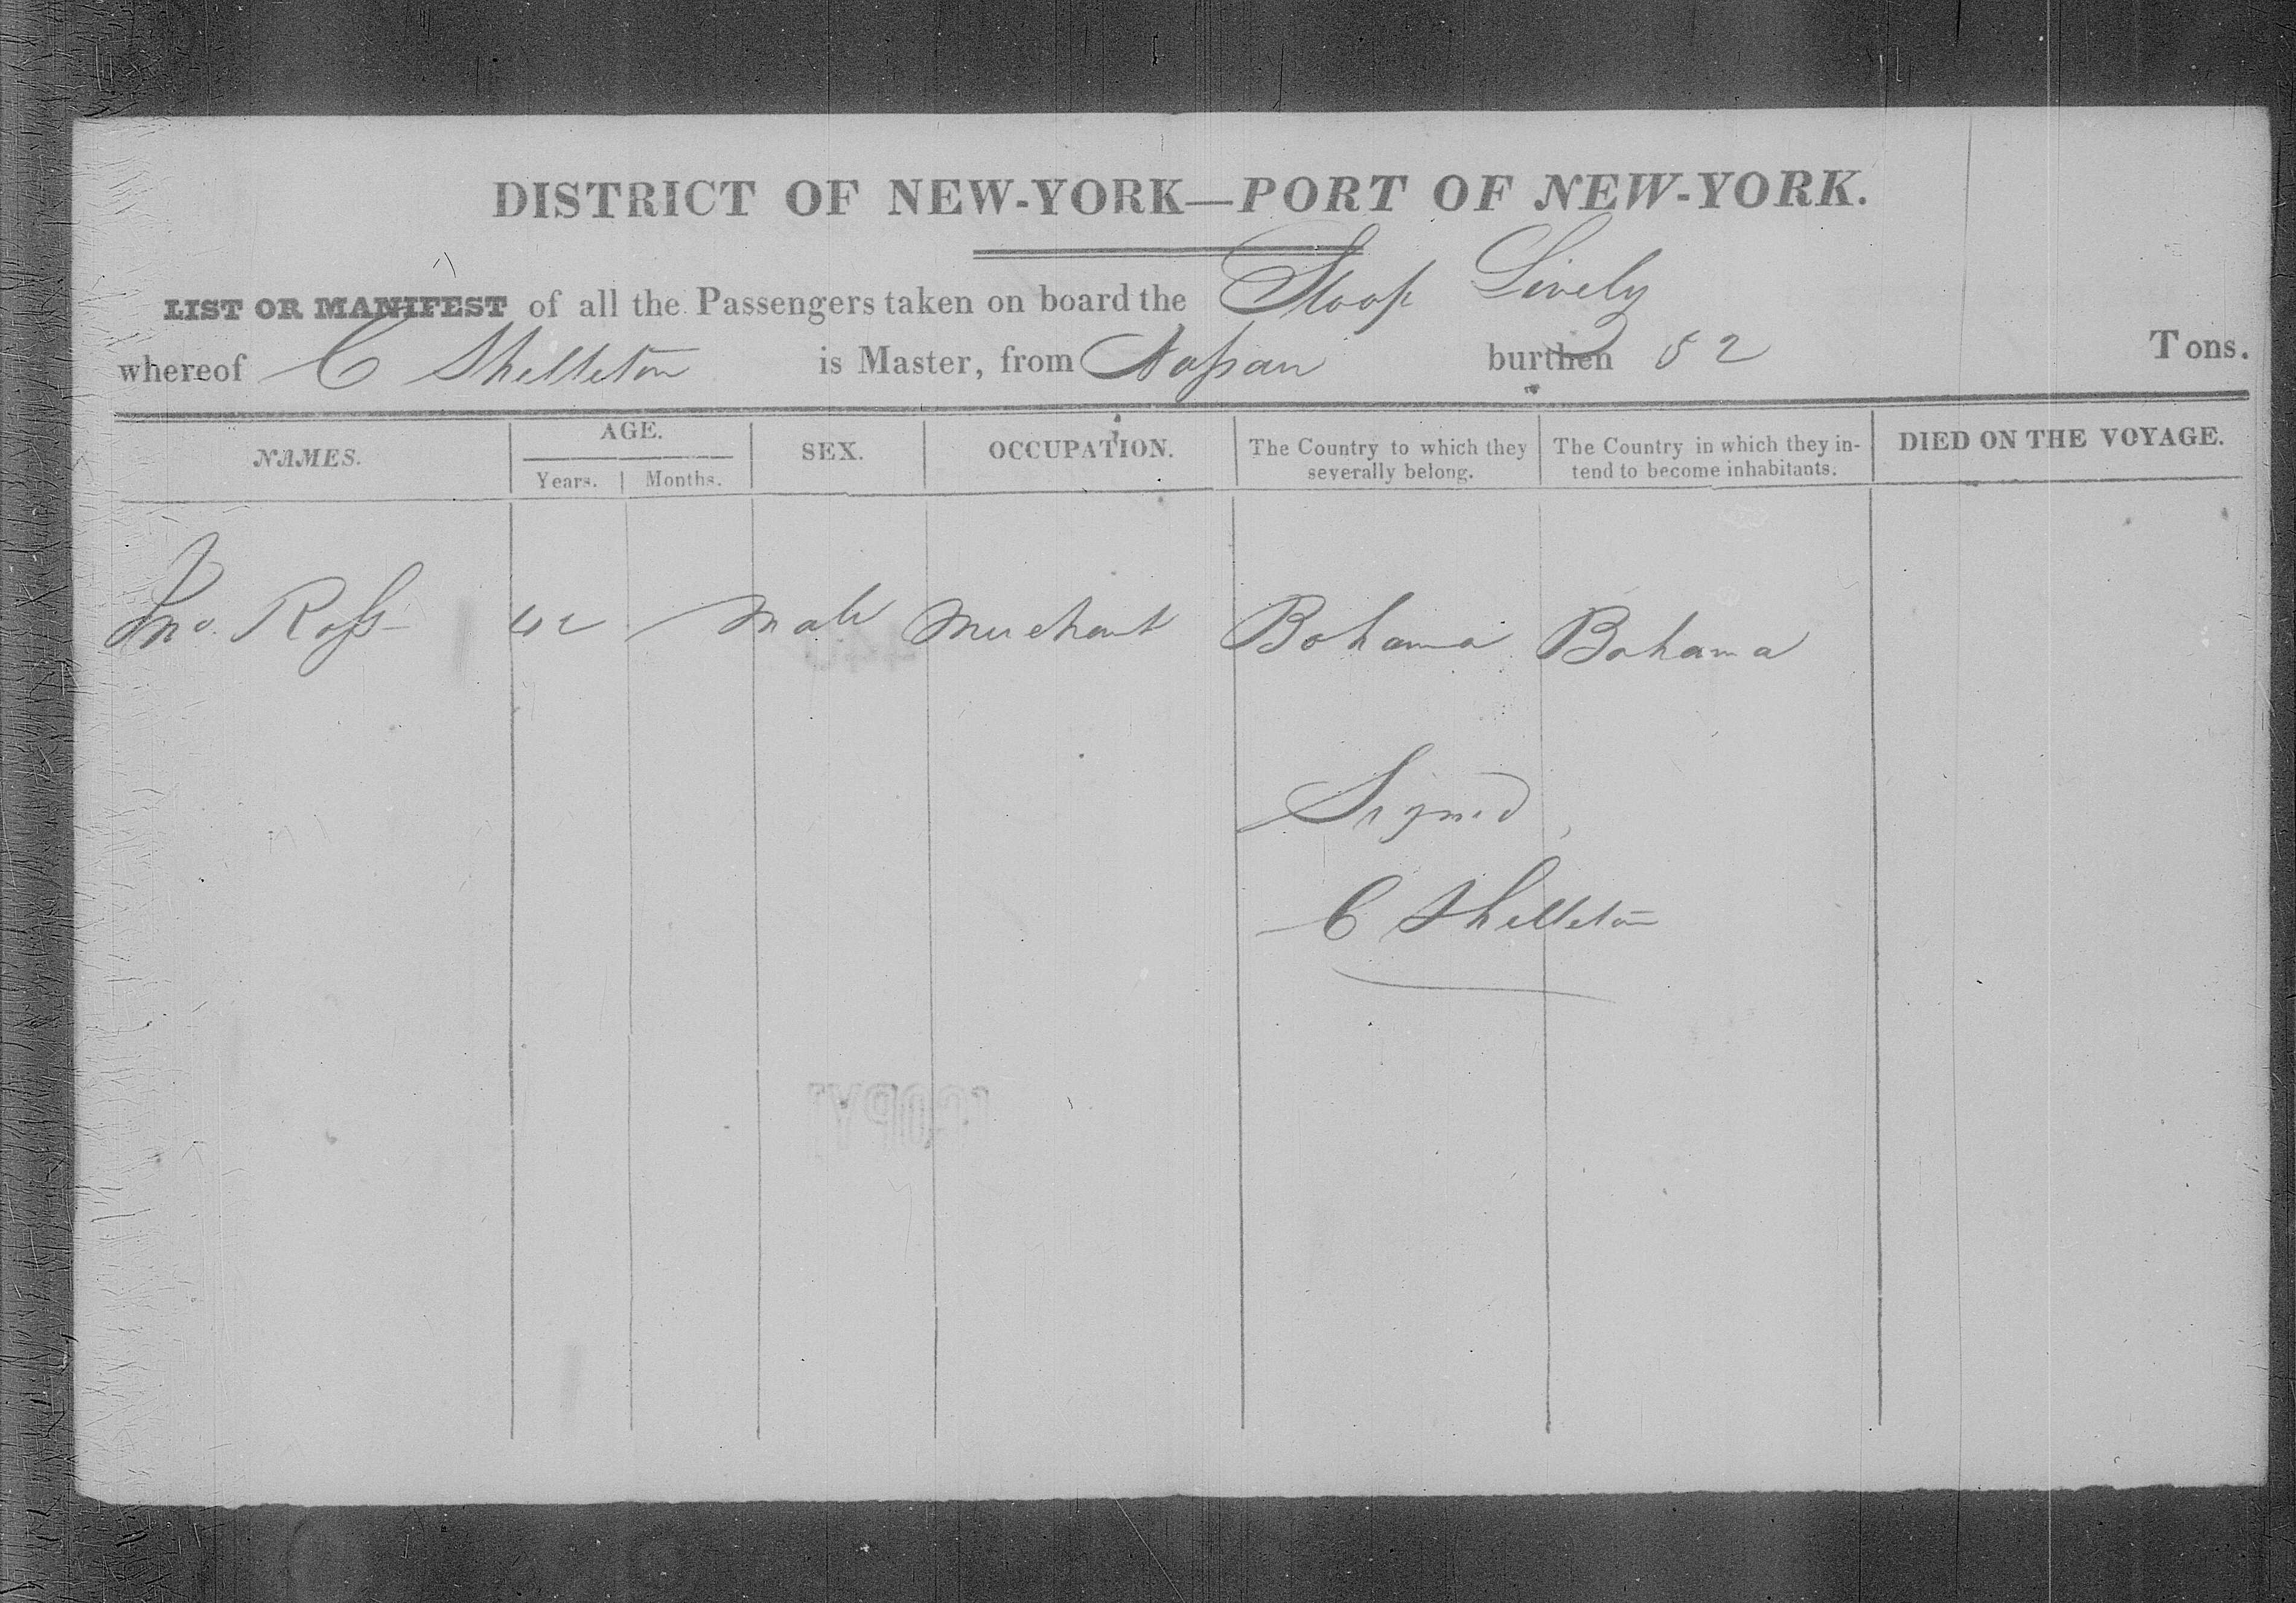 DISTRICT OF NEW-YORK—PORT OF NEW-YORK.
LIST OR MANIFEST of all the Passengers taken on board the Sloop Lively
whereof C Shelleton is Master, from Nassau burthen 52 Tons.
NAMES. AGE. Years. Months. SEX. OCCUPATION. The Country to which they severally belong. The Country in which they intend to become inhabitants. DIED ON THE VOYAGE.
Jno. Ross 42 Male Merchant Bahama Bahama
Signed
C Shelleton
COPY